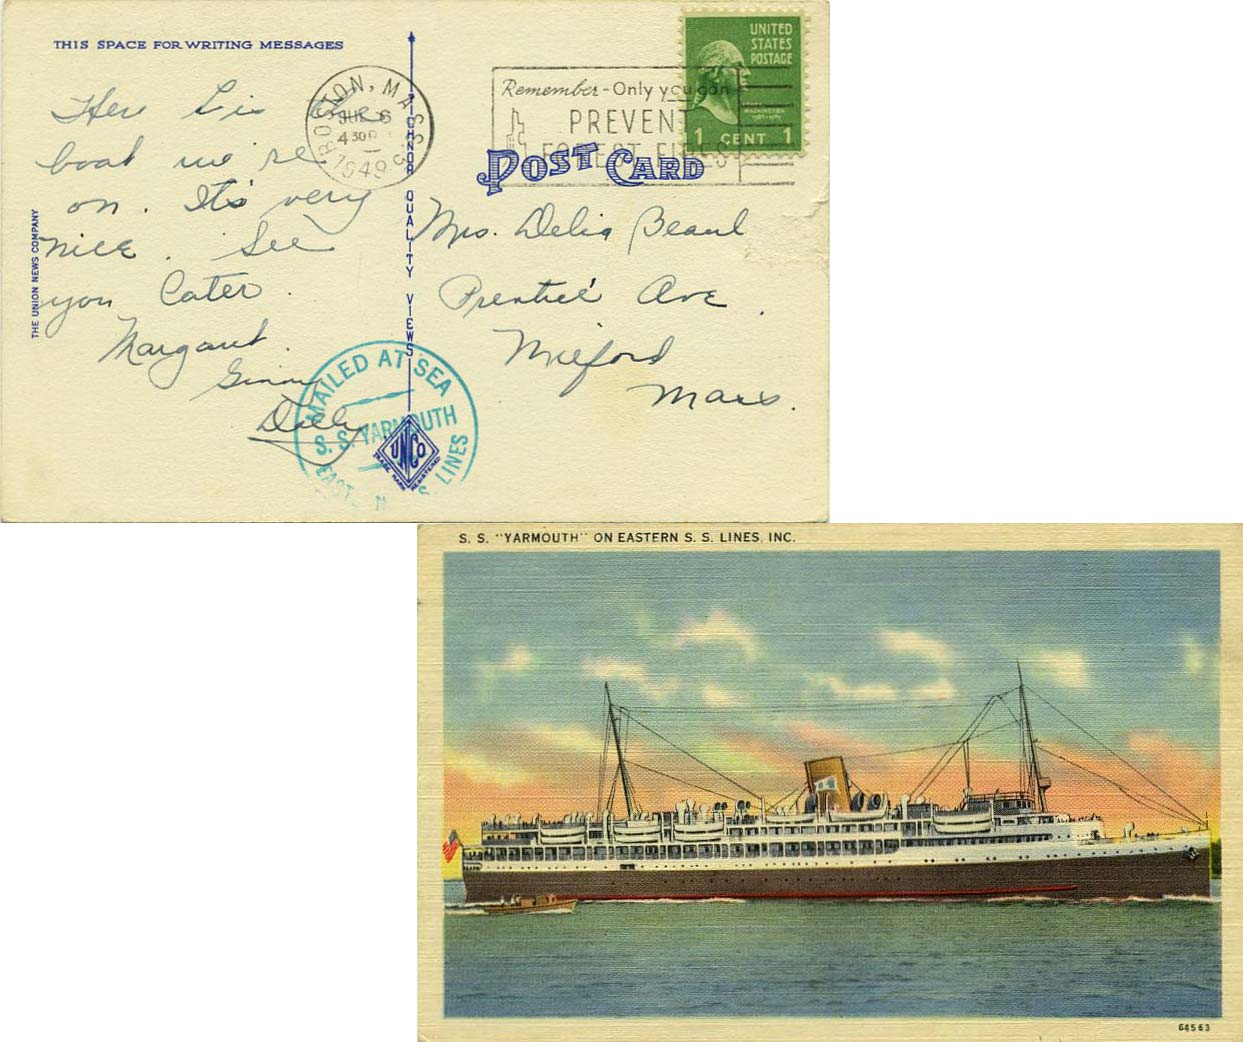 THIS SPACE FOR WRITING MESSAGES
Here is the
boat we're
on. It's very
nice. See
you Later.
Margaret.
Ginny
Dolly
THE UNION NEWS COMPANY
TICHNOR QUALITY VIEWS
BOSTON, MASS.
6
430P
1949
Remember - Only you can
PREVENT
FOREST FIRES
UNITED
STATES
POSTAGE
WASHINGTON
1 CENT 1
POST CARD
Mrs. Delia
Prentice Ave.
Milford
Mass.
MAILED AT SEA
S. S. YARMOUTH
EASTERN S.S. LINES
UNCO
TRADE MARK REGISTERED
S. S. "YARMOUTH" ON EASTERN S. S. LINES, INC.
64563